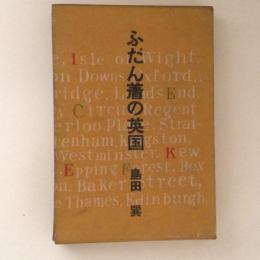 ふだん着の英国
島田 巽
Isle of Wight,
on Downs, Oxford,
bridge, Lands End,
Circus, Regent
erloo Place, Strat-
tenham, Kingston,
Westminster,
Epping Forest, Box
on, Baker Street,
e Thames, Edinburgh